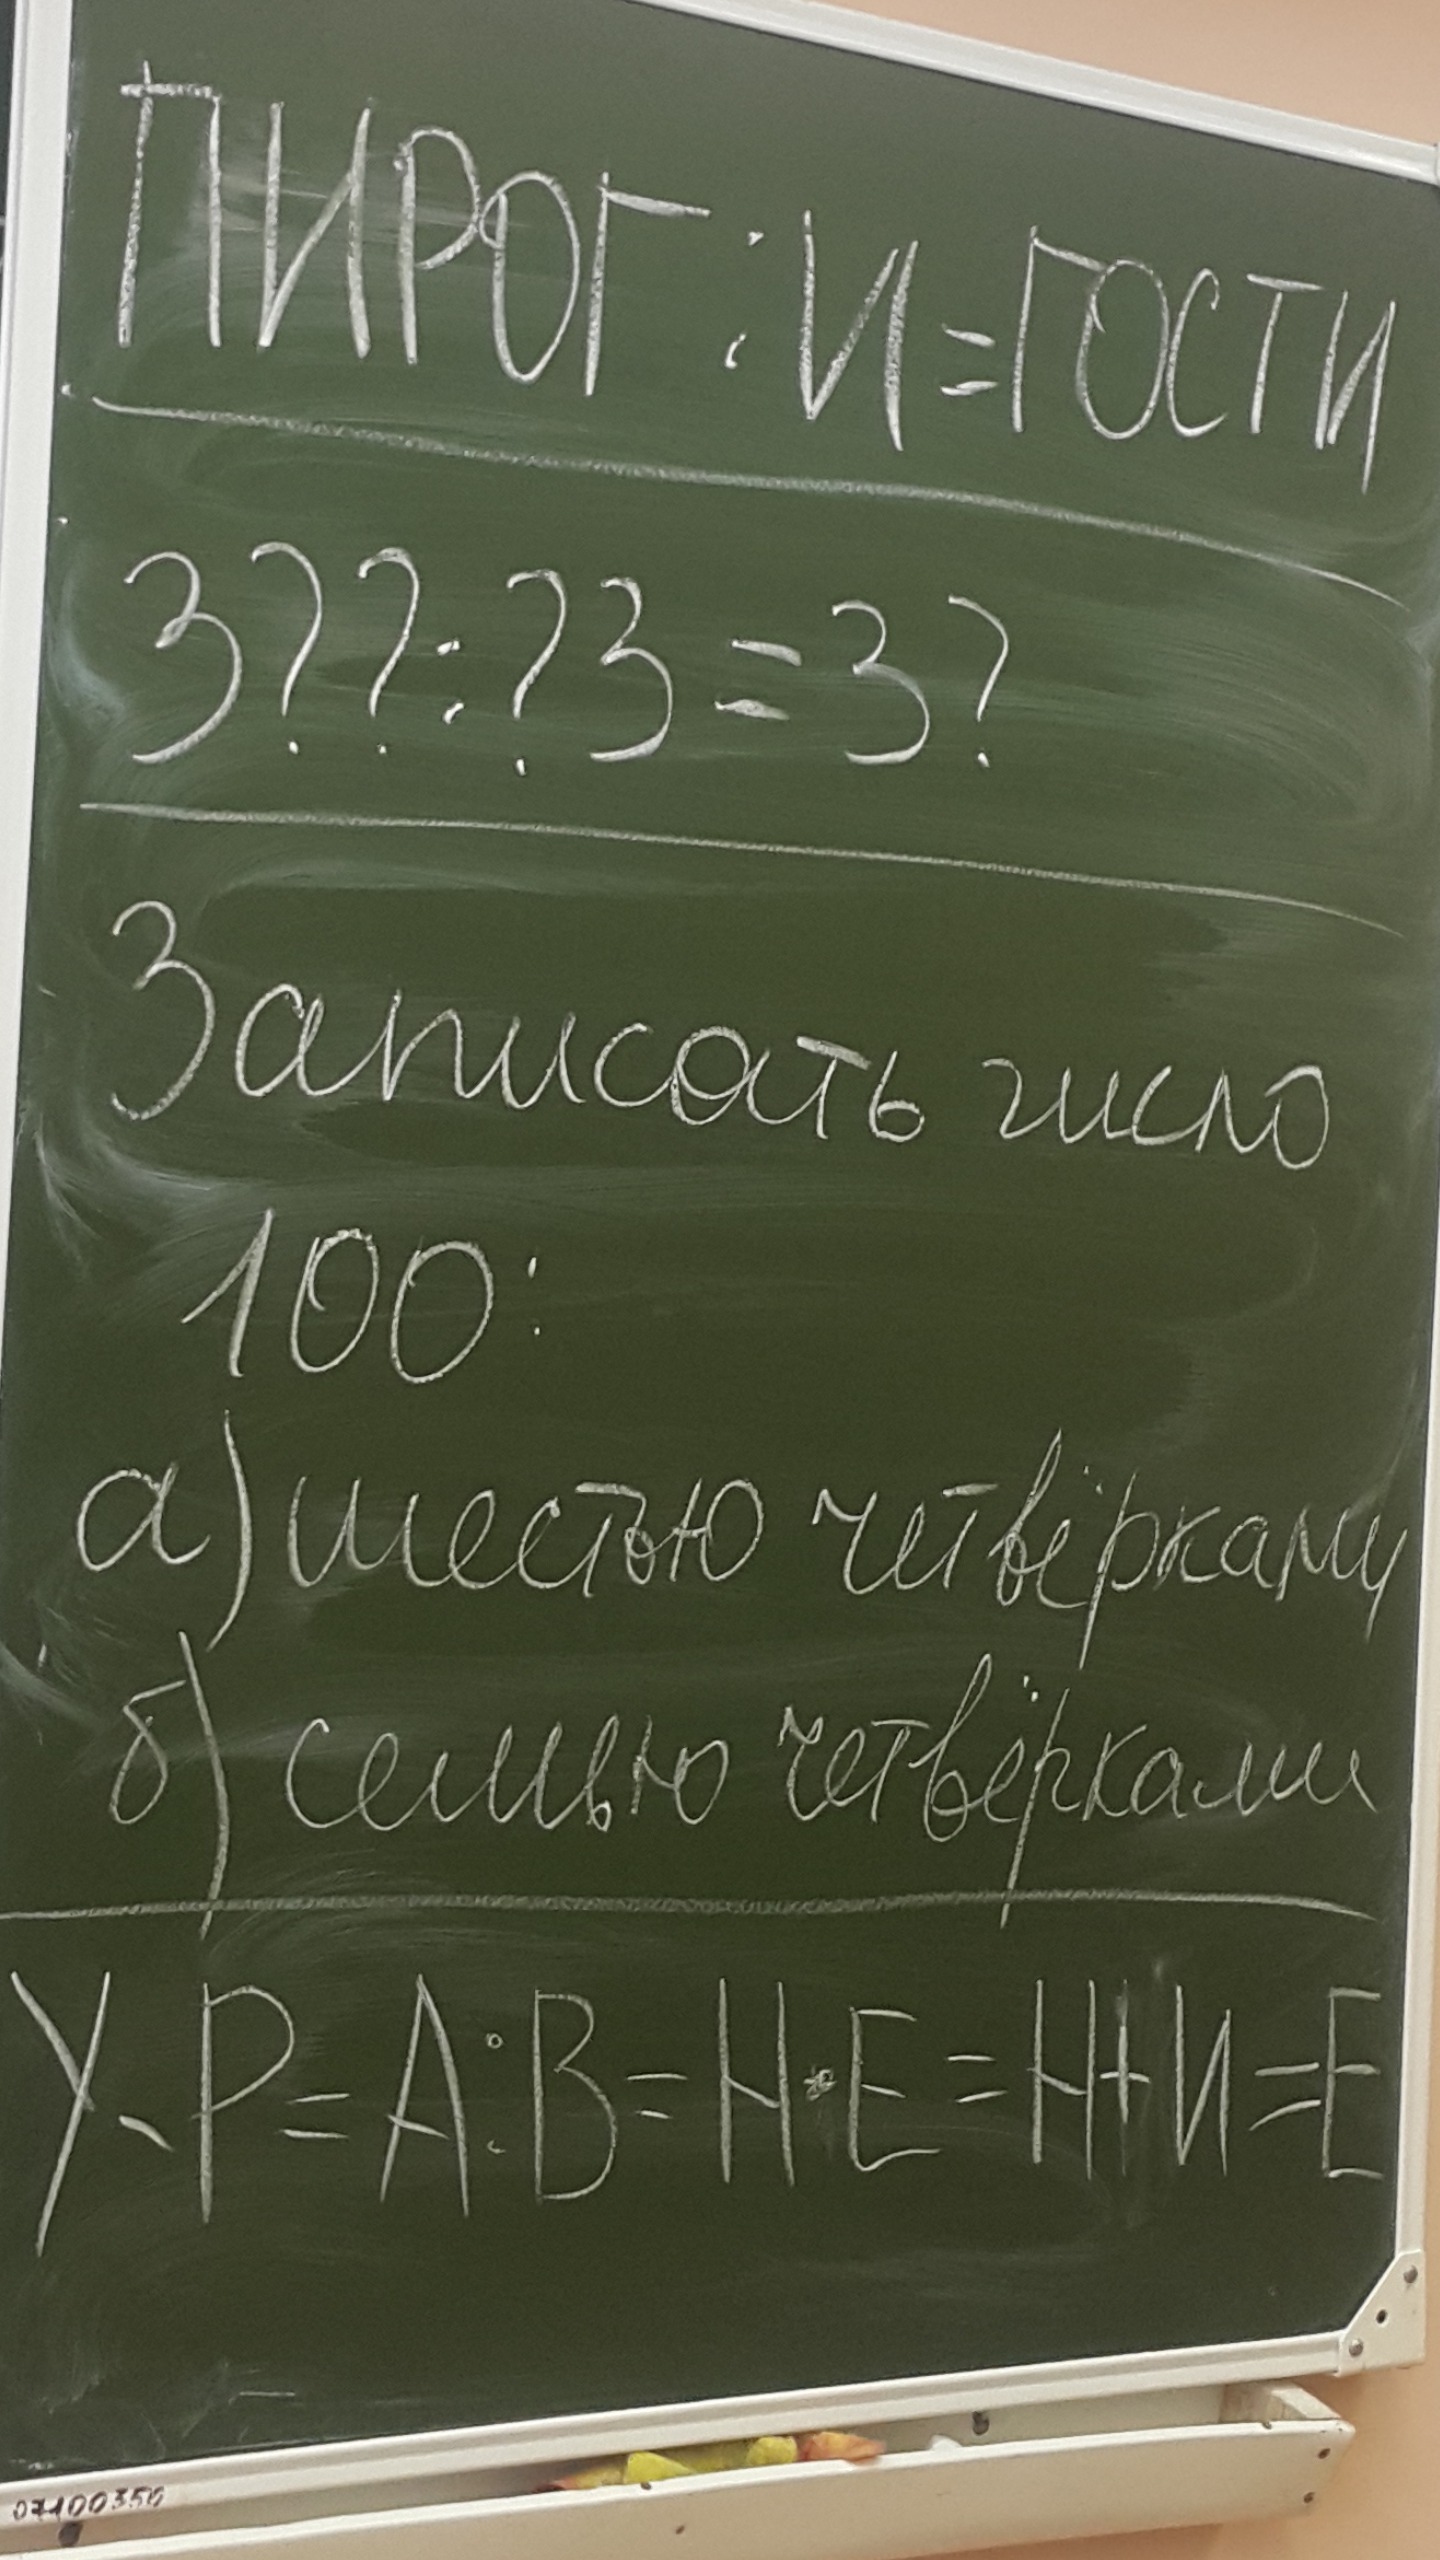 ПИРОГ : И = ГОСТИ
3?? : ?3 = 3?
Записать число
100:
а) шестью четвёрками
б) семью четвёрками
У - Р = А : В = Н · Е = Н + И = Е
07100350